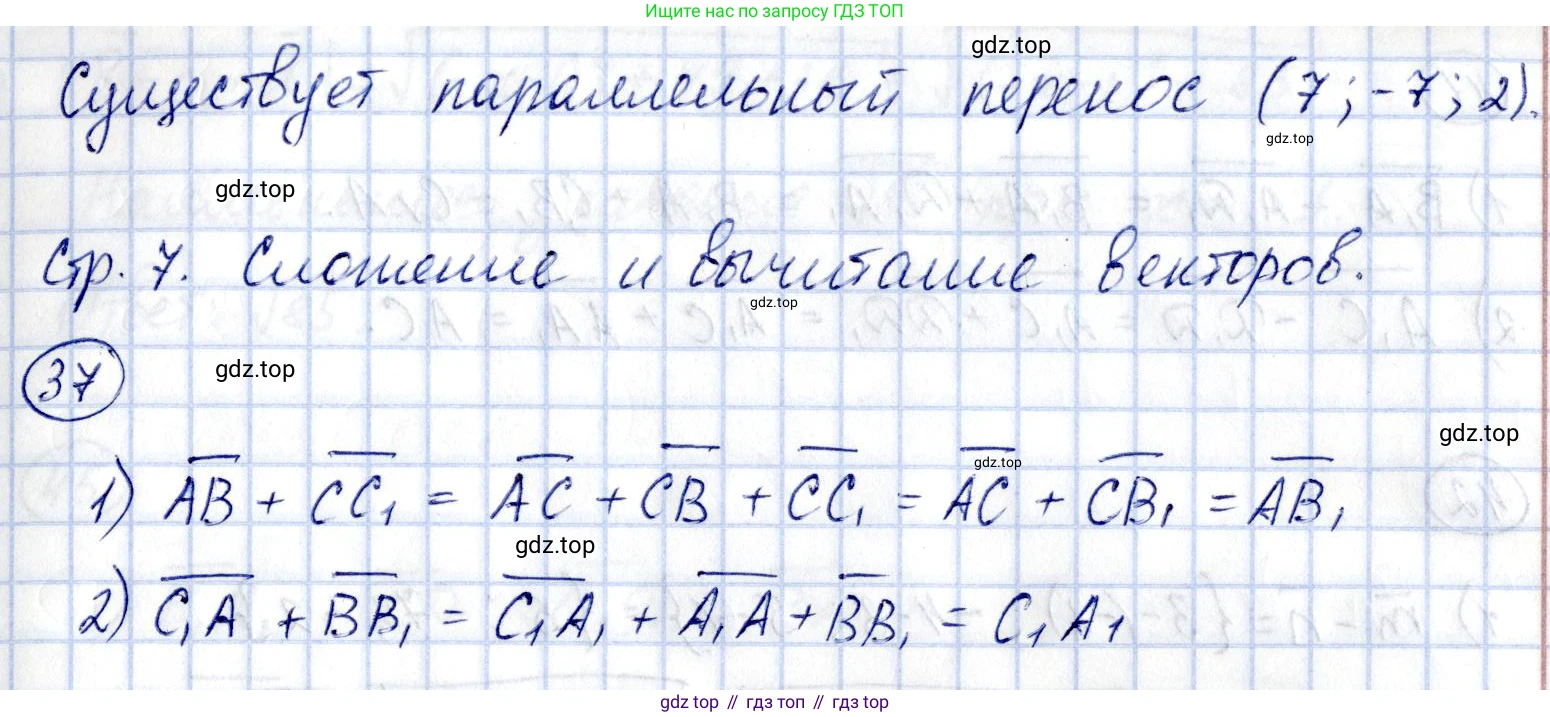 Ищите нас по запросу ГДЗ ТОП
gdz.top
Существует параллельный перенос (7; -7; 2).
gdz.top
gdz.top
Стр. 7. Сложение и вычитание векторов.
gdz.top
37
gdz.top
gdz.top
gdz.top
1) A̅B̅ + C̅C̅₁ = A̅C̅ + C̅B̅ + C̅C̅₁ = A̅C̅ + C̅B̅₁ = A̅B̅₁
gdz.top
2) C̅₁A̅ + B̅B̅₁ = C̅₁A̅₁ + A̅₁A̅ + B̅B̅₁ = C₁A₁
gdz.top // гдз топ // гдз top